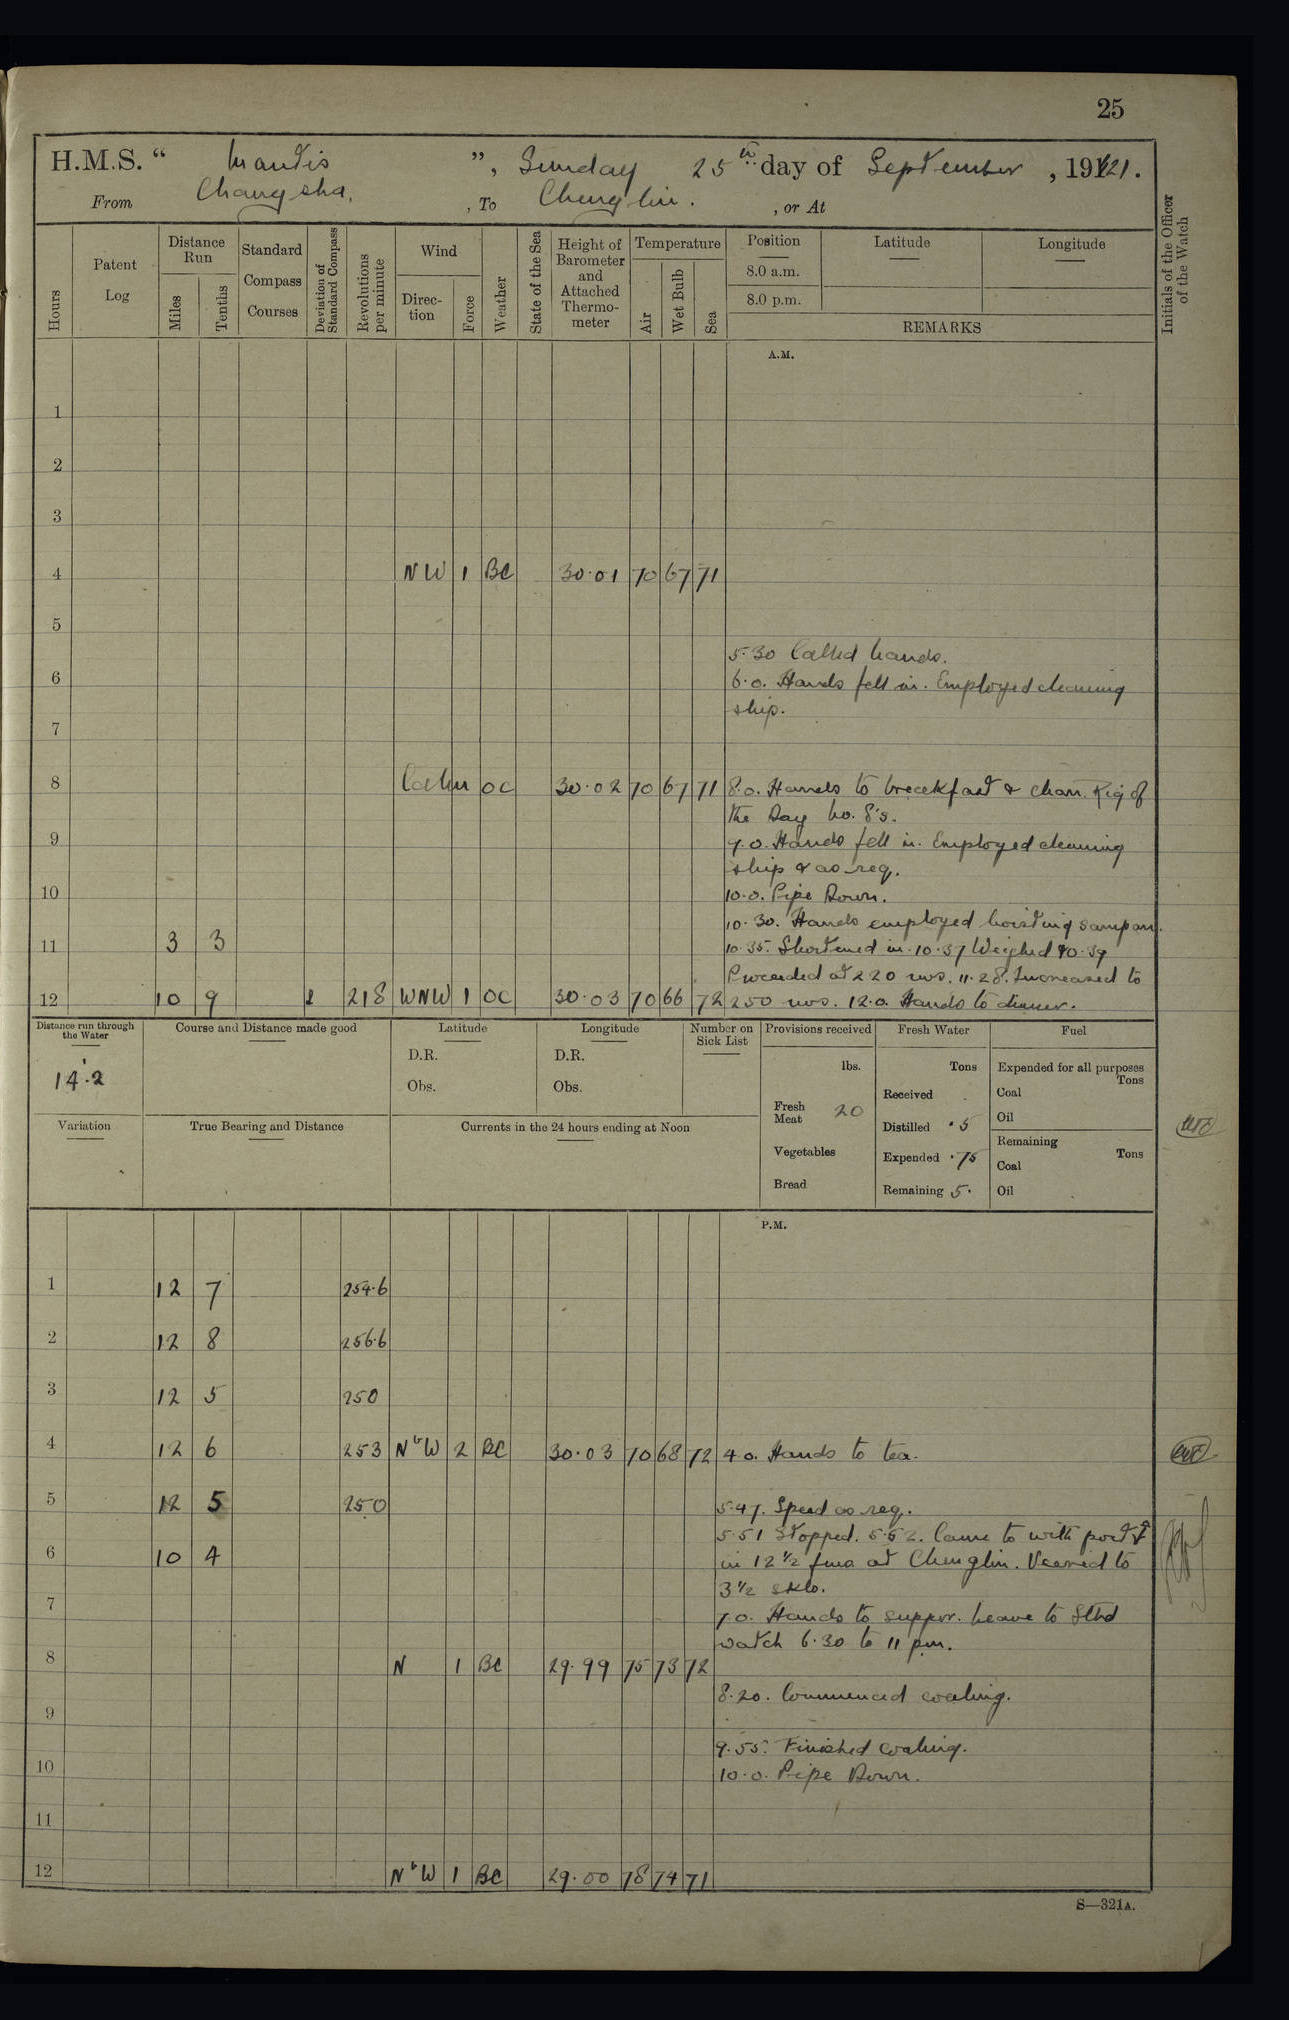 25
H.M.S. “ Mantis ”, Sunday 25th day of September, 1921.
From Changsha, , To Chenglin. , or At
Hours
Patent Log
Distance Run
Miles
Tenths
Standard Compass Courses
Deviation of Standard Compass
Revolutions per minute
Wind
Direction
Force
Weather
State of the Sea
Height of Barometer and Attached Thermometer
Temperature
Air
Wet Bulb
Sea
Position
8.0 a.m.
8.0 p.m.
Latitude
Longitude
REMARKS
Initials of the Officer of the Watch
A.M.
1
2
3
4 NW 1 BC 30.01 70 67 71
5
5.30 Called hands.
6 6.0. Hands fell in. Employed cleaning
ship.
7
8 Calm OC 30.02 70 67 71 8.0. Hands to breakfast & clean. Rig of
the Day No. 8's.
9 9.0. Hands fell in. Employed cleaning
ship & as req.
10 10.0. Pipe Down.
10.30. Hands employed hoisting sampan.
11 3 3 10.35. Shortened in. 10.37 Weighed 10.39
Proceeded at 220 revs. 11.28. Increased to
12 10 9 218 WNW 1 OC 30.03 70 66 72 250 revs. 12.0. Hands to dinner.
Distance run through the Water
14.2
Course and Distance made good
Latitude
D.R.
Obs.
Longitude
D.R.
Obs.
Number on Sick List
Provisions received
lbs.
Fresh Meat 20
Vegetables
Bread
Fresh Water
Tons
Received
Distilled .5
Expended .75
Remaining 5.
Fuel
Expended for all purposes
Tons
Coal
Oil
Remaining
Tons
Coal
Oil
Variation
True Bearing and Distance
Currents in the 24 hours ending at Noon
P.M.
1 12 7 254.6
2 12 8 256.6
3 12 5 250
4 12 6 253 NbW 2 BC 30.03 70 68 72 4.0. Hands to tea.
5 12 5 250 5.47. Speed as req.
5.51 Stopped. 5.52. Came to with port
6 10 4 in 12 1/2 fms at Chenglin. Veered to
3 1/2 skls.
7 7.0. Hands to supper. Leave to Stbd
watch 6.30 to 11 pm.
8 N 1 BC 29.99 75 73 72
8.20. Commenced coaling.
9
9.55. Finished coaling.
10 10.0. Pipe Down.
11
12 NbW 1 BC 29.00 78 74 71
S—321A.